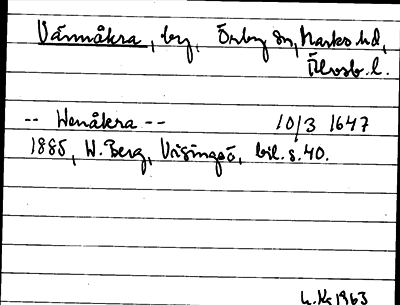 Värmåkra, by, Örby sn, Marks hd,
Älvsb. l.
-- Wenåkra -- 10/3 1647
1885, W. Berg, Visingsö, bil. s. 40.
1963